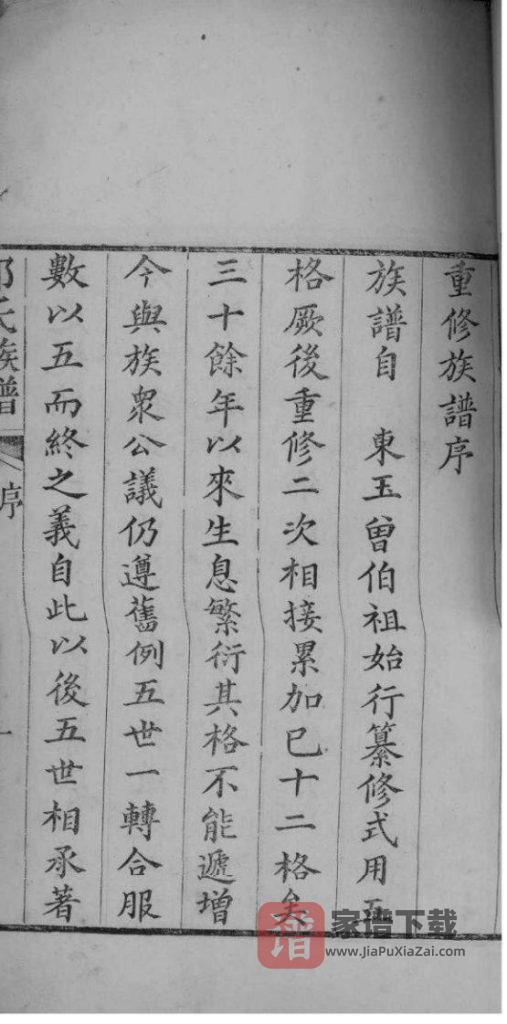 重修族譜序
族譜自 東玉曾伯祖始行纂修式用五
格厥後重修二次相接累加已十二格矣
三十餘年以來生息繁衍其格不能遞增
今與族眾公議仍遵舊例五世一轉合服
數以五而終之義自此以後五世相承著
氏族譜 序 一
谱 家谱下载
www.JiaPuXiaZai.com